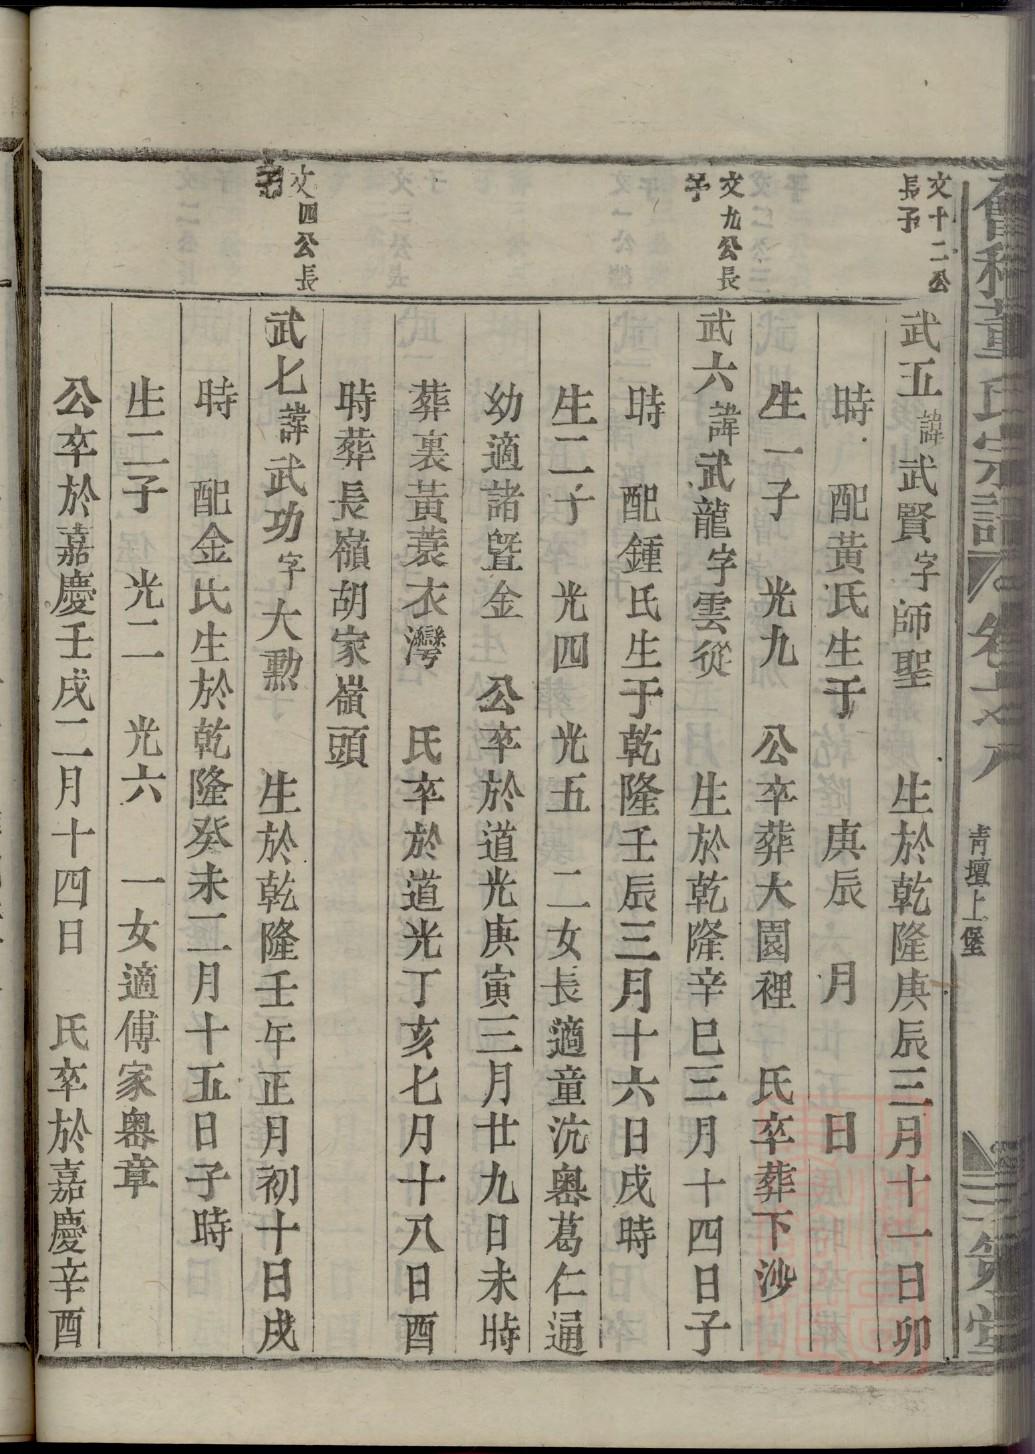 董氏宗譜
青壇上堡
三策堂
文十二公
長子
武五諱武賢字師聖 生於乾隆庚辰三月十一日卯
時 配黃氏生于乾隆 庚辰 月 日
生一子 光九 公卒葬大園裡 氏卒葬下沙
文九公長
子
武六諱武龍字雲從 生於乾隆辛巳三月十四日子
時 配鍾氏生于乾隆壬辰三月十六日戌時
生二子 光四 光五 二女長適童沆奧葛仁通
幼適諸暨金 公卒於道光庚寅三月廿九日未時
葬裏黃蓑衣灣 氏卒於道光丁亥七月十八日酉
時葬長嶺胡家嶺頭
文四公長
子
武七諱武功字大勳 生於乾隆壬午正月初十日戌
時 配金氏生於乾隆癸未二月十五日子時
生二子 光二 光六 一女適傅家奧章
公卒於嘉慶壬戌二月十四日 氏卒於嘉慶辛酉